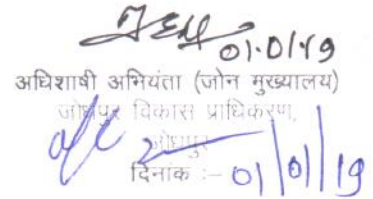 01.01.19
अधिशाषी अभियंता (जोन मुख्यालय)
जोधपुर विकास प्राधिकरण,
जोधपुर
दिनांक :- 01/01/19